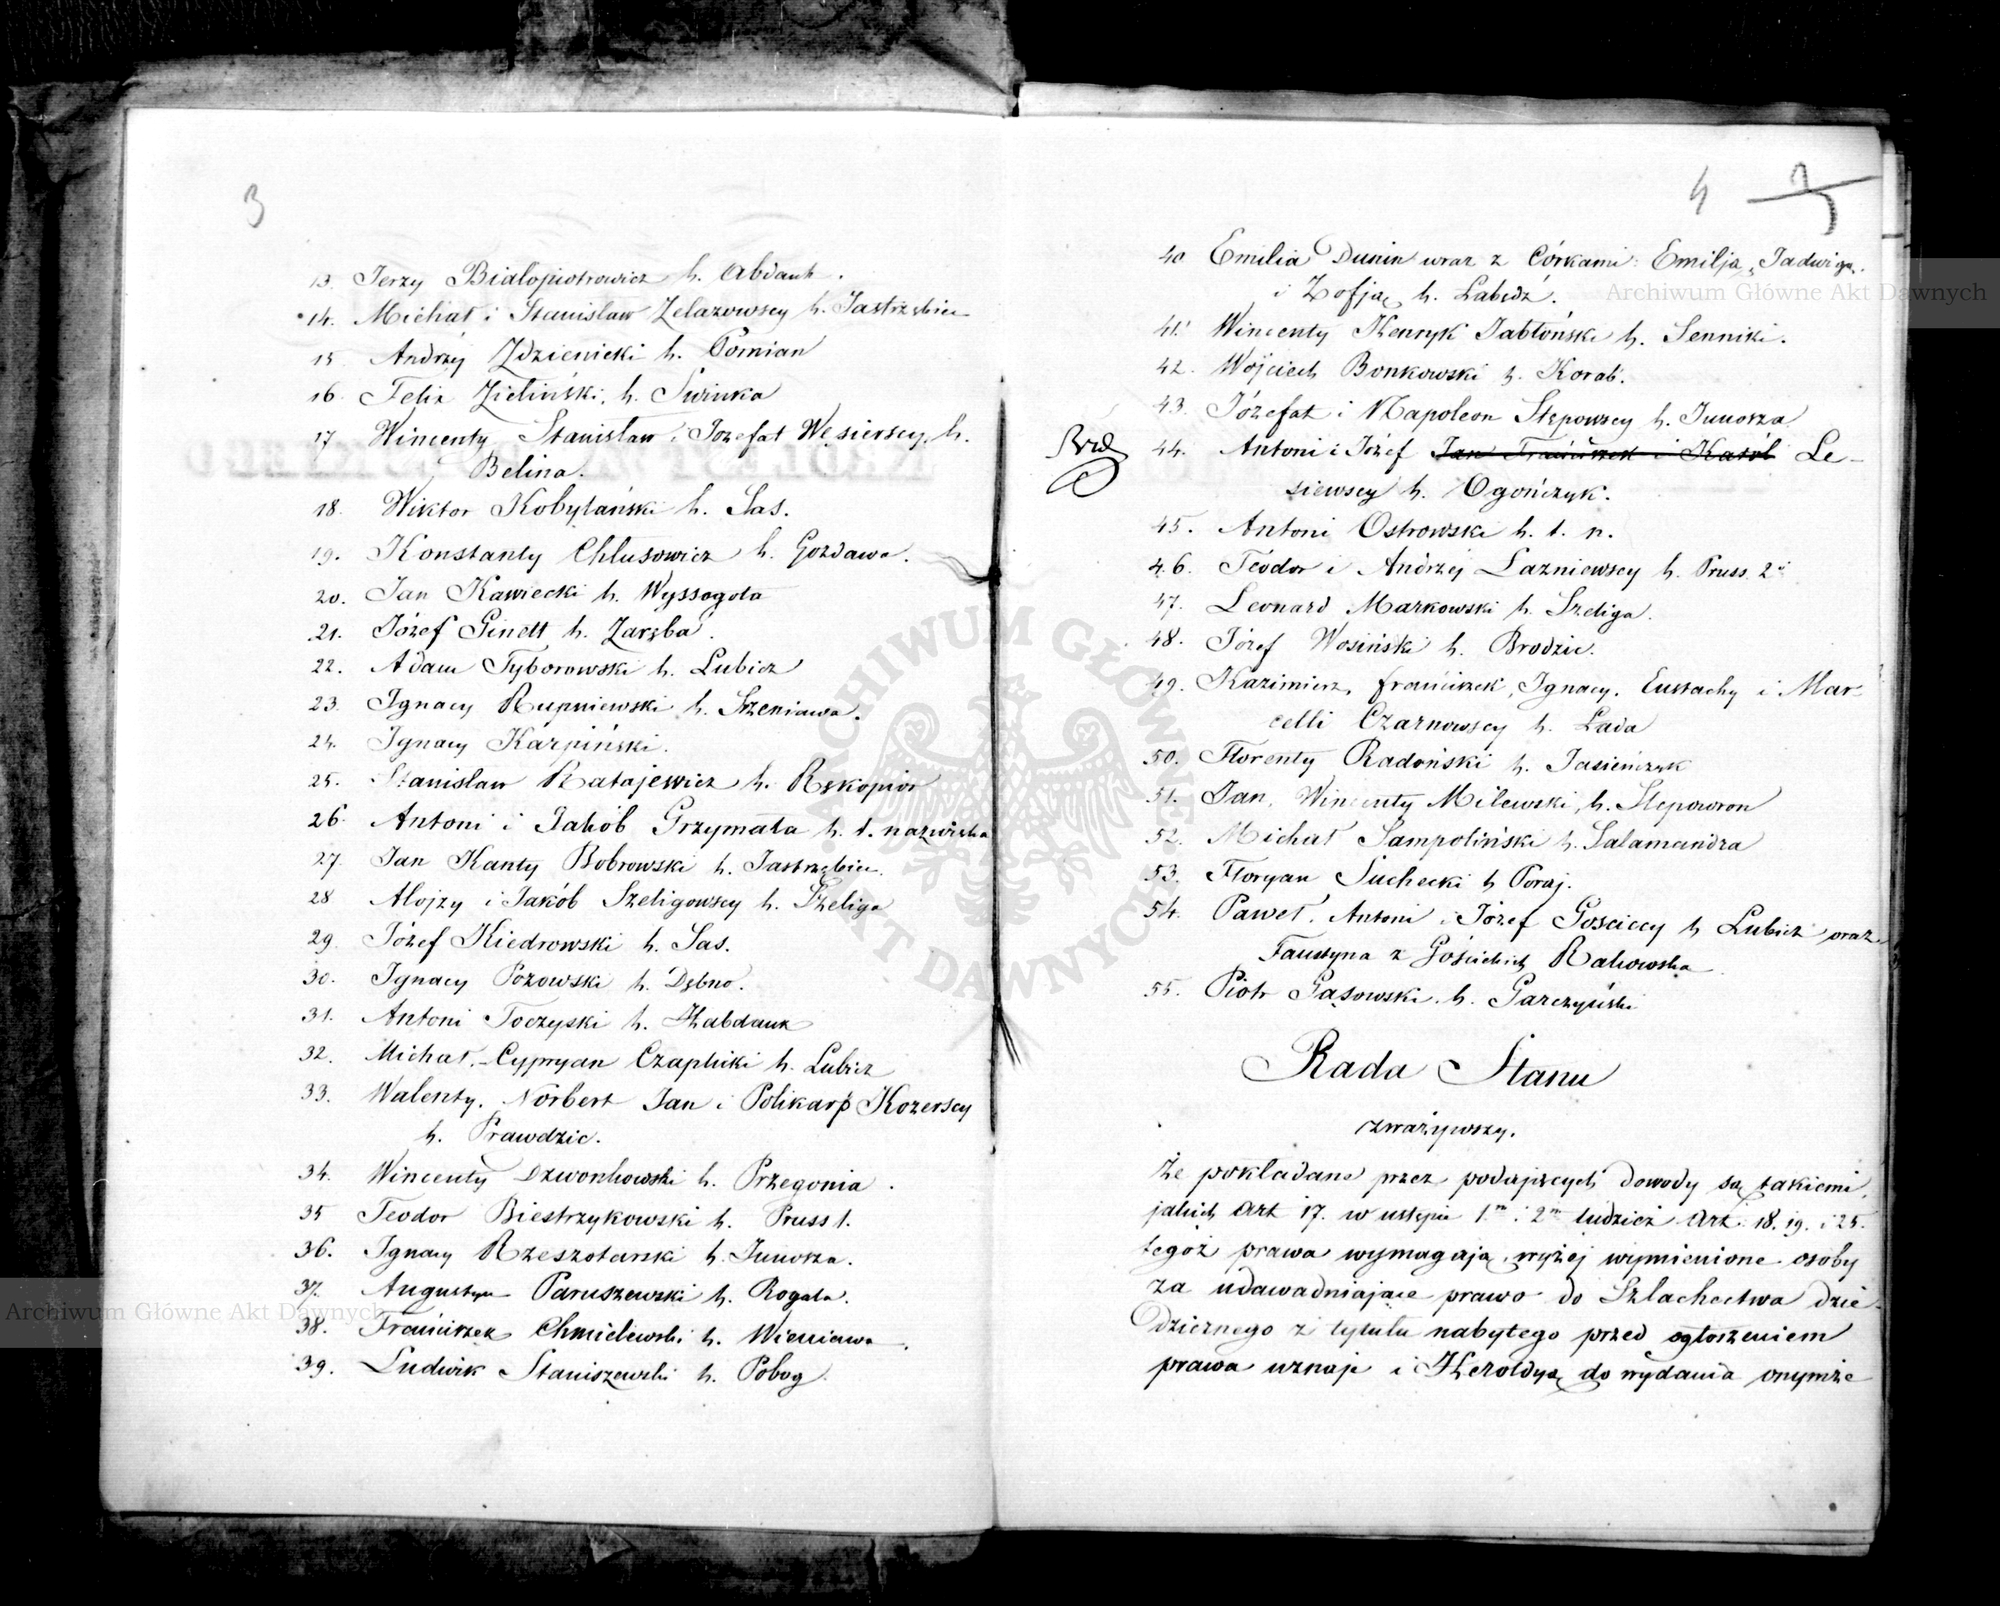 3
13. Jerzy Białopiotrowicz h. Abdank.
14. Michał i Stanisław Żelazowscy h. Jastrzębiec
15 Andrzéj Zdzienicki h. Pomian
16. Felix Zieliński, h. Świnka
17 Wincenty Stanisław i Józefat Węsierscy h.
Belina.
18. Wiktor Kobylański h. Sas.
19. Konstanty Chlusowicz h. Gozdawa.
20. Jan Kawiecki h. Wyssogota
21. Józef Ginett h. Zaręba.
22. Adam Tyborowski h. Lubicz
23. Ignacy Rupniewski h. Szreniawa.
24. Ignacy Karpiński.
25. Stanisław Ratajewicz h. Rękopiór
26. Antoni i Jakób Grzymała h. t. nazwiska
27. Jan Kanty Bobrowski h. Jastrzębiec.
28 Alojzy i Jakób Szeligowscy h. Szeliga
29. Józef Kiedrowski h. Sas.
30. Ignacy Pozowski h. Dębno.
31. Antoni Toczyski h. Habdank
32. Michał-Cypryan Czaplicki h. Lubicz
33. Walenty, Norbert Jan i Polikarp Kozerscy
h. Prawdzic.
34. Wincenty Dzwonkowski h. Przegonia.
35 Teodor Biestrzykowski h. Pruss 1.
36. Ignacy Rzeszotarski h. Junosza.
37. Augustyn Paruszewski h. Rogala.
38. Franciszek Chmielewski h. Wieniawa.
39. Ludwik Staniszewski h. Pobog.
4
40 Emilia Dunin wraz z Córkami: Emilją, Jadwigą,
i Zofją h. Łabędź.
41. Wincenty Henryk Jabłoński h. Senniki.
42. Wojciech Bonkowski h. Korab.
43. Józefat i Napoleon Stępowscy h. Junosza
44. Antoni i Józef Jan Franciszek i Karól Le-
siewscy h. Ogończyk.
45. Antoni Ostrowski h. t. n.
46. Teodor i Andrzéj Łazniewscy h. Pruss 2º
47. Leonard Markowski h. Szeliga.
48. Józef Wosiński h. Brodzic.
49. Kazimierz, Franciszek, Ignacy, Eustachy i Mar-
celli Czarnowscy h. Łada
50. Florenty Radoński h. Jasieńczyk
51. Jan, Wincenty Milewski, h. Ślepowron
52. Michał Sampoliński h. Salamandra
53. Floryan Suchecki h Poraj.
54. Paweł, Antoni i Józef Gościccy h Lubicz oraz
Faustyna z Gościckich Rakowska
55. Piotr Gąsowski h. Garczyński
Rada Stanu
zważywszy,
Że pokładane przez podających dowody są takiemi,
jakich Art 17. w ustępie 1.m i 2m tudzież Art. 18. 19. i 25.
tegóż prawa wymagają, wyżej wymienione osoby
za udawadniające prawo do Szlachectwa dzie-
dzicznego z tytułu nabytego przed ogłoszeniem
prawa uznaje i Heroldyą do wydania onymże
Archiwum Główne Akt Dawnych
Archiwum Główne Akt Dawnych
ARCHIWUM GŁÓWNE AKT DAWNYCH